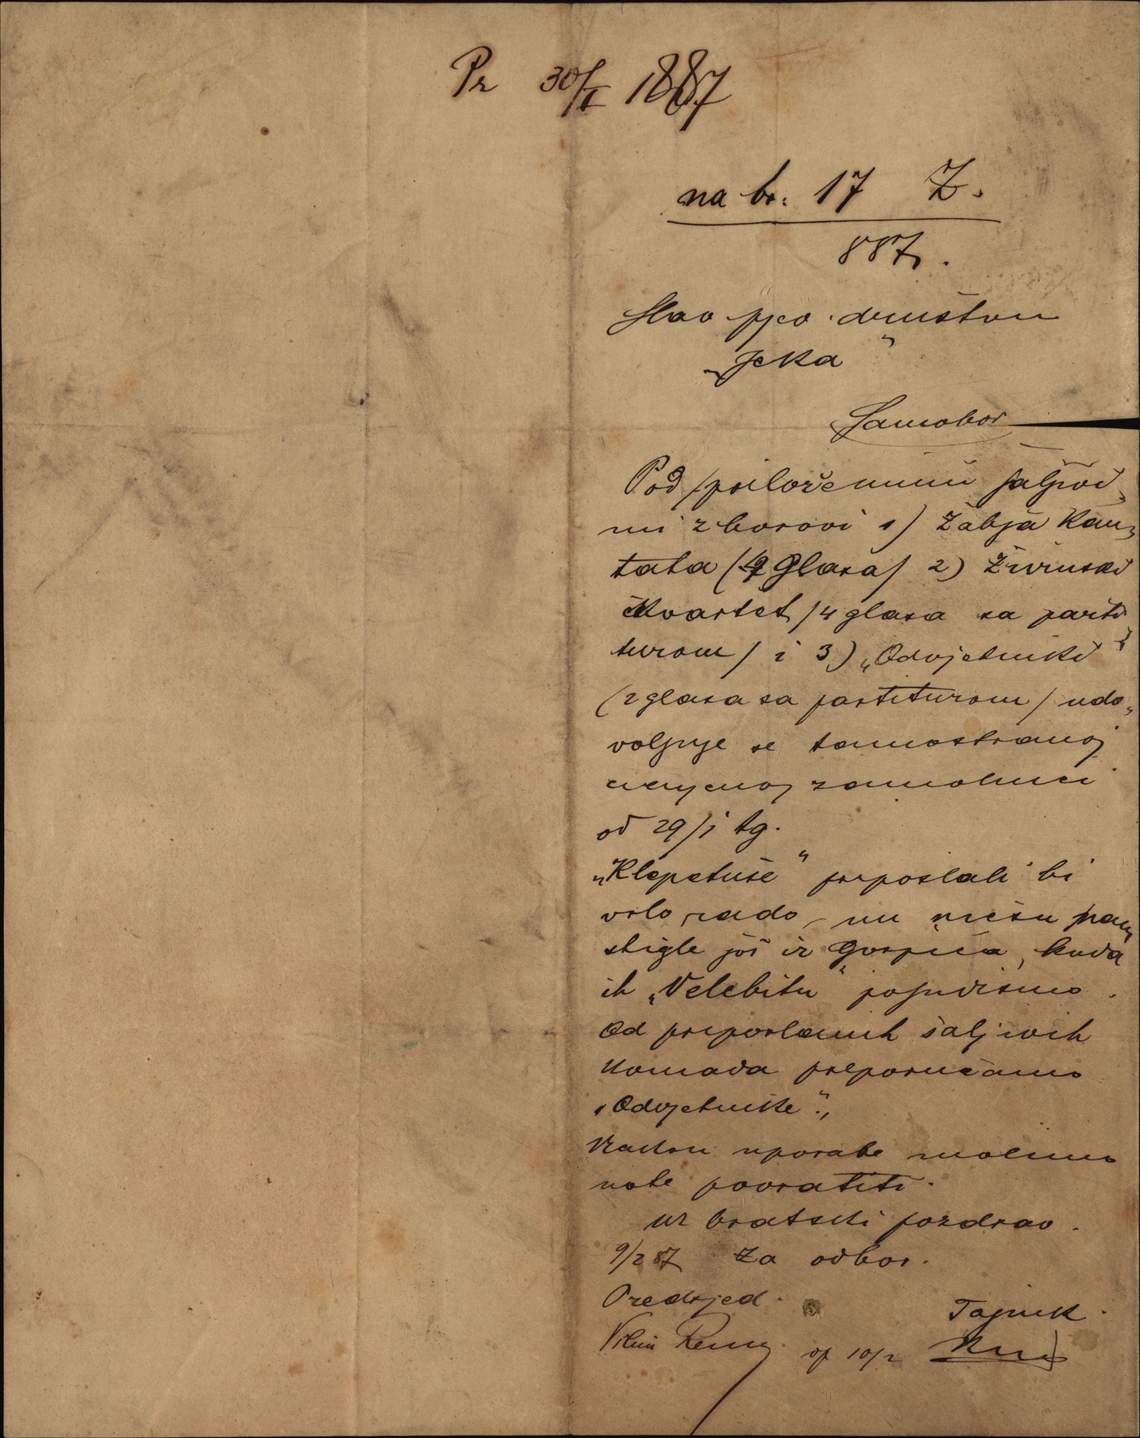 Pr 30/I 1887
na br. 17 Z.
887.
Slav pjev. društvu
„Jeka“
Samobor
Pod priloženimi šaljivi„
mi zborovi 1) Žabja Kan„
tata (4 glasa/ 2) Živinski
kvartet /4 glasa sa parti„
turom/ i 3) „Odvjetniki“
(2 glasa sa partiturom/ udo„
voljuje se tamostranoj
zamolnici
od 29/1 tg.
„Klepetuše“ priposlali bi
vrlo rado, nu niesu nam
stigle još iz Gospića, kuda
ih „Velebitu“ posudismo.
Od priposlanih šaljivih
komada preporučamo
„Odvjetnike“.
Nakon uporabe molimo
note povratiti.
Uz bratski pozdrav.
9/2 87 Za odbor.
Predsjed.
Tajnik.
Vilim
op 10/2